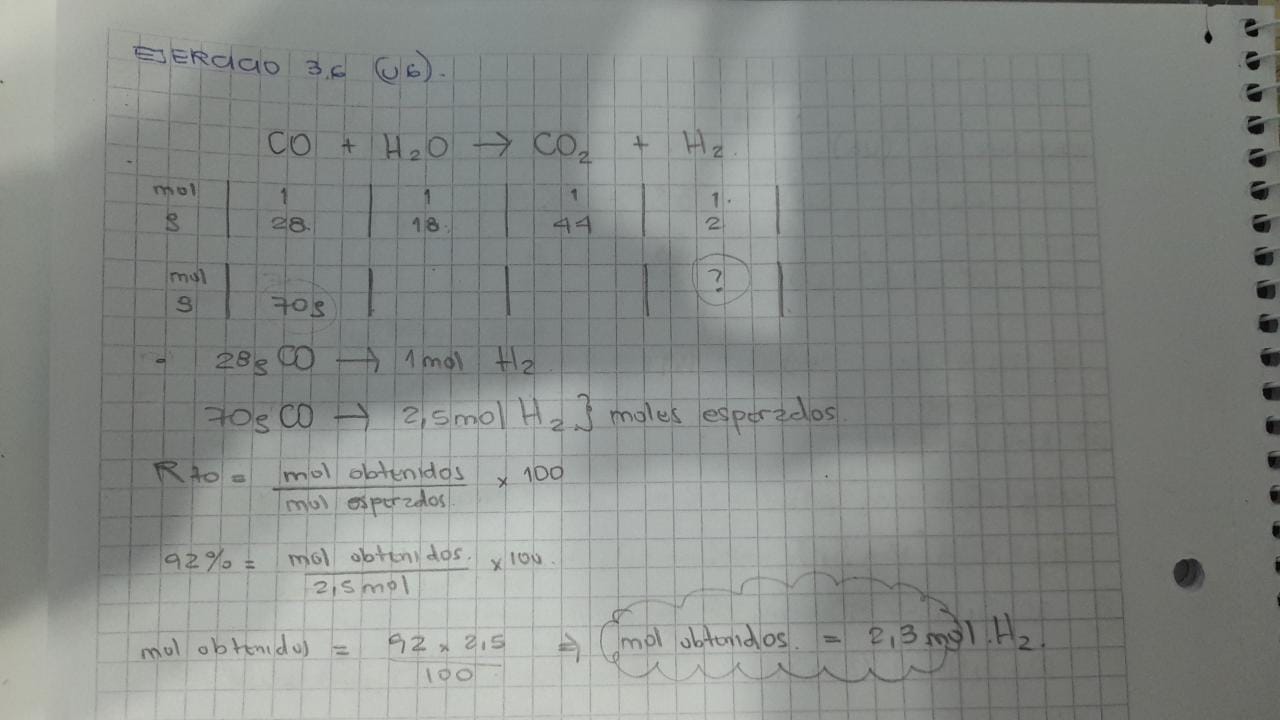 EJERCICIO 3.6 (U6).
CO + H₂O → CO₂ + H₂
mol | 1 | 1 | 1 | 1 |
g | 28 | 18 | 44 | 2 |
mol | | | | ? |
g | 70g | | | |
- 28g CO → 1 mol H₂
70g CO → 2,5 mol H₂ } moles esperados.
Rto = mol obtenidos / mol esperados × 100
92% = mol obtenidos / 2,5 mol × 100
mol obtenidos = 92 × 2,5 / 100 ⇒ mol obtenidos = 2,3 mol H₂.